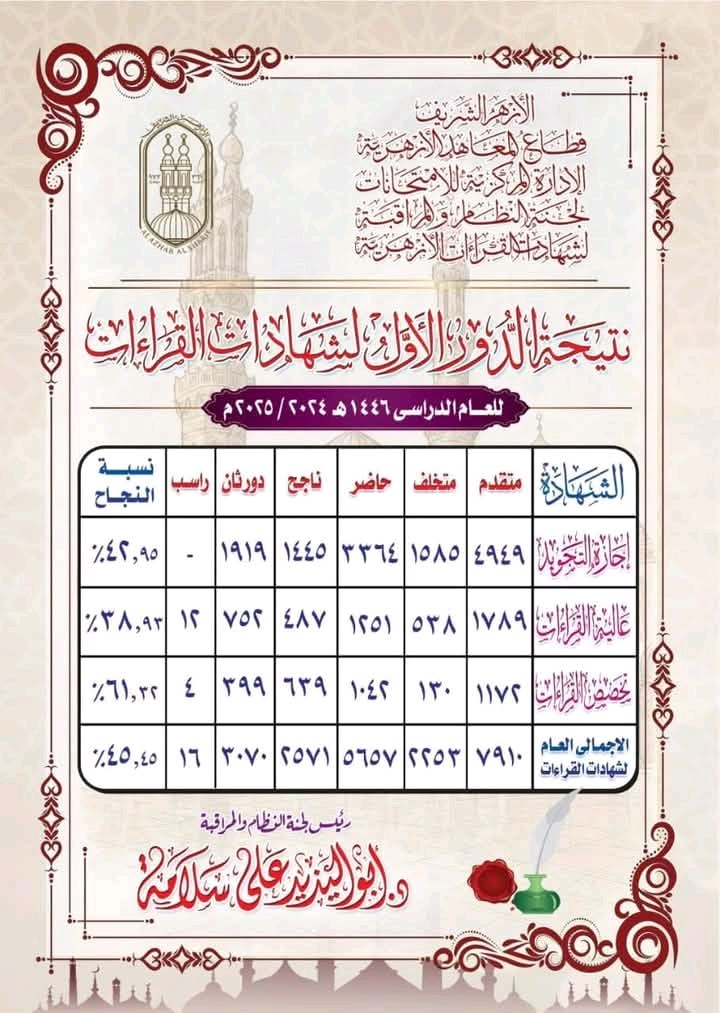 الأزهر الشريف
قطاع المعاهد الأزهرية
الإدارة المركزية للامتحانات
لجنة النظام والمراقبة
لشهادات القراءات الأزهرية
AL AZHAR AL SHARIF
نتيجة الدور الأول لشهادات القراءات
للعام الدراسى ١٤٤٦هـ ٢٠٢٤ / ٢٠٢٥م
الشهادة متقدم متخلف حاضر ناجح دورثان راسب نسبة النجاح
إجازة التجويد ٤٩٤٩ ١٥٨٥ ٣٣٦٤ ١٤٤٥ ١٩١٩ - ٤٢,٩٥٪
عالية القراءات ١٧٨٩ ٥٣٨ ١٢٥١ ٤٨٧ ٧٥٢ ١٢ ٣٨,٩٣٪
تخصص القراءات ١١٧٢ ١٣٠ ١٠٤٢ ٦٣٩ ٣٩٩ ٤ ٦١,٣٢٪
الاجمالى العام لشهادات القراءات ٧٩١٠ ٢٢٥٣ ٥٦٥٧ ٢٥٧١ ٣٠٧٠ ١٦ ٤٥,٤٥٪
رئيس لجنة النظام والمراقبة
د. أبو اليزيد على سلامة